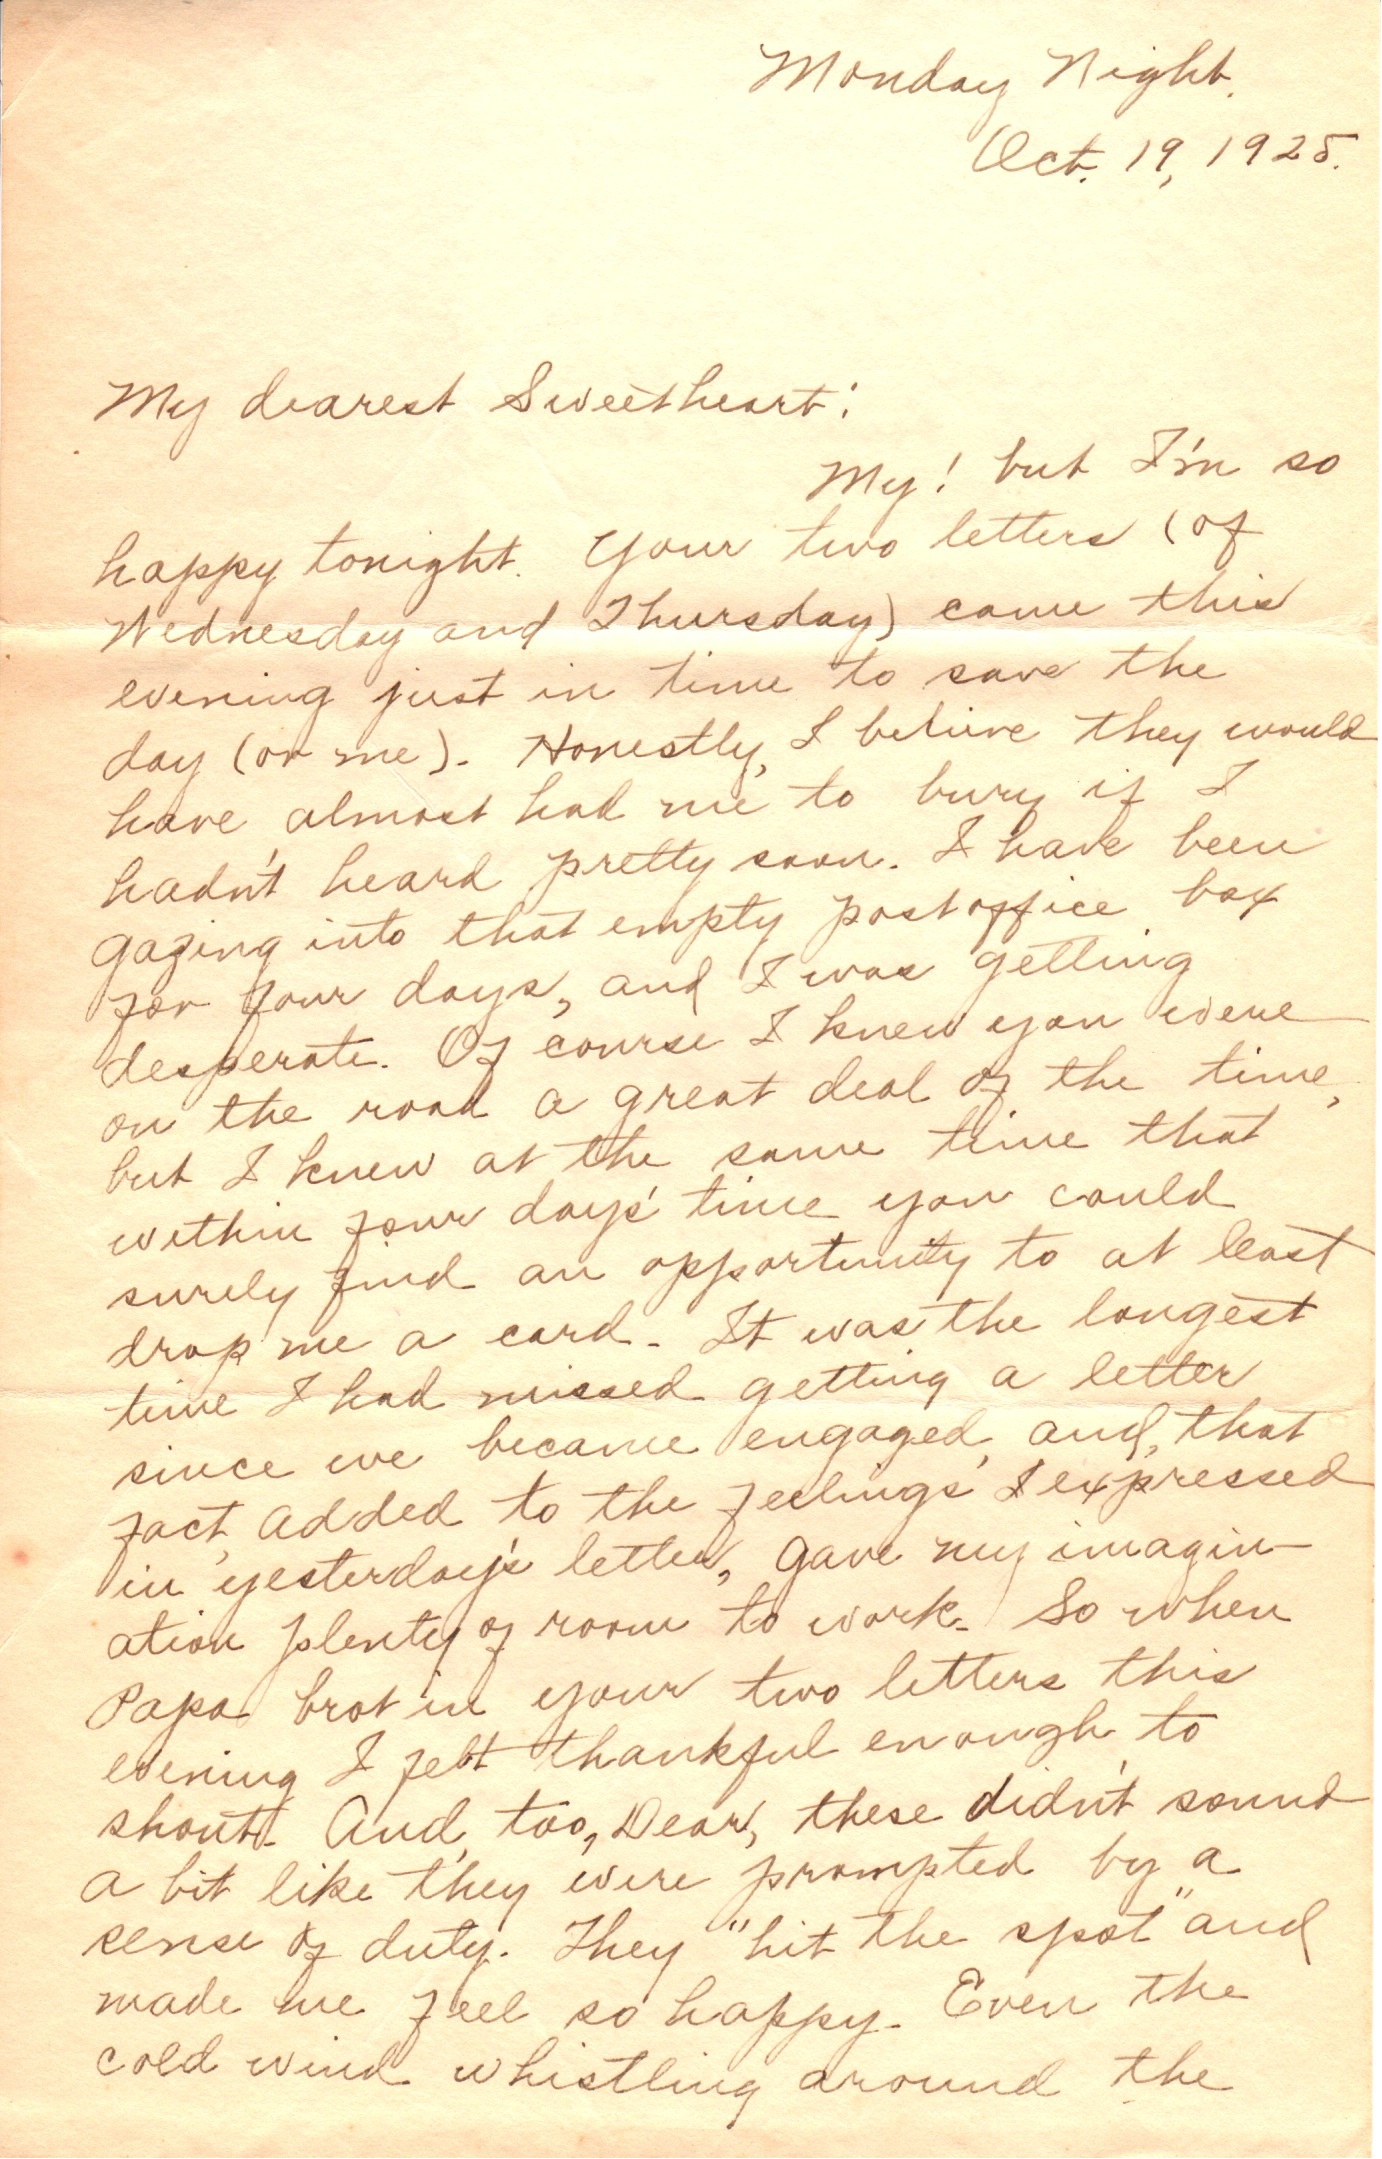 Monday Night.
Oct. 19, 1925.
My dearest Sweetheart:
My! but I'm so
happy tonight. Your two letters (of
Wednesday and Thursday) came this
evening just in time to save the
day (or me). Honestly, I believe they would
have almost had me to bury if I
hadn't heard pretty soon. I have been
gazing into that empty postoffice box
for four days, and I was getting
desperate. Of course I knew you were
on the road a great deal of the time,
but I knew at the same time that
within four days' time you could
surely find an opportunity to at least
drop me a card. It was the longest
time I had missed getting a letter
since we became engaged, and, that
fact, added to the feelings I expressed
in yesterday's letter, gave my imagin-
ation plenty of room to work. So when
Papa brot in your two letters this
evening I felt thankful enough to
shout. And, too, Dear, these didn't sound
a bit like they were prompted by a
sense of duty. They "hit the spot" and
made me feel so happy. Even the
cold wind whistling around the